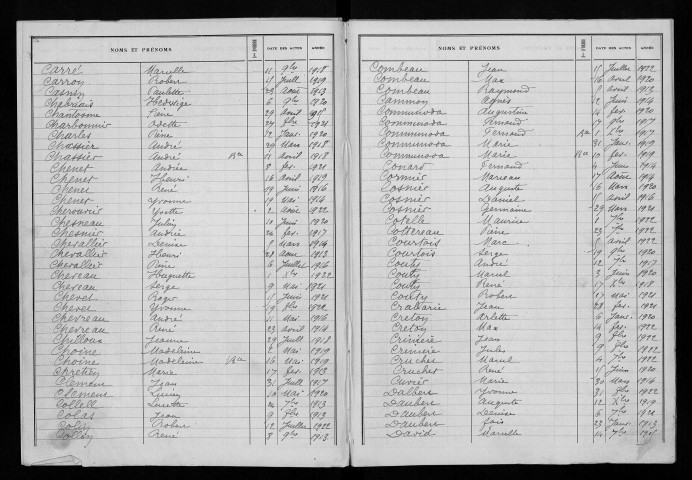 NOMS ET PRÉNOMS DATE DES ACTES ANNÉE
Carré Marcelle 11 9bre 1918
Carron Robert 4 Juill 1919
Casnin Paulette 23 Août 1913
Chabriais Hedwige 6 9bre 1920
Chantosme 29 Avril
Charbonnier Odette 27 1921
Charles 12 Janv. 1920
Chassier André 29 Mars 1918
Chassier André Ron 11 Avril 1918
Chenet Andrée 8 fev. 1921
Chenet Henri 16 Avril 1919
Chenet René 19 Juin 1916
Chenet Yvonne 19 Mai 1914
Cherouvrier Yvette 2 Août 1922
Chesneau Julien 10 Juin
Chesnier Andrée 26 fev. 1917
Chevallier Denise 5 Mars 1914
Chevallier Henri 28 Août 1913
Chevallier 6 Juillet 1916
Cheveau Huguette 1 Xbre 1922
Cheveau Serge 9 Mai 1921
Chevet Roger 11 Juin 1921
Chevet Yvonne 19 1922
Chevreau André 11 Mai 1916
Chevreau René 23 Avril 1914
Chilloux Jeanne 29 Juill 1918
Choine Madeleine 2 Mai 1919
Choine Madeleine Ron 16 Mai 1919
Chretien Marie 17 fev. 1913
Clément Jean 31 Juill 1917
Clement Lucien 10 Mai 1920
Collell Lucette 24 7bre 1913
Colas Jean 9 1913
Robert 12 Juillet 1922
René 3 9bre 1913
NOMS ET PRÉNOMS DATE DES ACTES ANNÉE
Combeau Jean 15 Juillet 1922
Combeau Max 16 Avril 1920
Combeau Raymond 8 Avril 1913
Cammon Agnès 2 Juin 1914
Communoda Augustine 14 fev. 1914
Communoda Armand 17 1917
Communoda Fernand Ron 1 Xbre 1917
Communoda Marie 31 Janv. 1919
Communoda Marie Ron 10 fev. 1919
Conart Fernand 4 Juin 1914
Cormier Marceau 17 Août 1914
Cosnier Auguste 16 Mars 1920
Cosnier Daniel 15 Avril 1916
Cosnier Germaine 29 Mars 1921
Cotelle Maurice 1 7bre 1922
Cottereau 23 7bre 1922
Courtois Marc 5 Avril 1922
Courtois Serge 19 9bre 1920
Couty André 12 7bre 1917
Couty Marcel 3 Juin 1920
Couty René 17 Xbre 1918
Couty Robert 17 Mai 1921
Crabarie Jean 28 fev. 1921
Creton Arlette 6 Janv. 1920
Creton Max 14 fev. 1922
Crinière Jean 9 1922
Crinière Jules 1922
Cruchet Marcel 4 7bre 1922
Cruchet René 15 Juin 1920
Cuvier Marie 30 Mars 1914
Dalbert Yvonne 31 1922
Daubert Auguste 12 Xbre 1919
Daubert Denise 6 7bre 1921
Daubert 23 Janv. 1913
David Marcelle 14 7bre